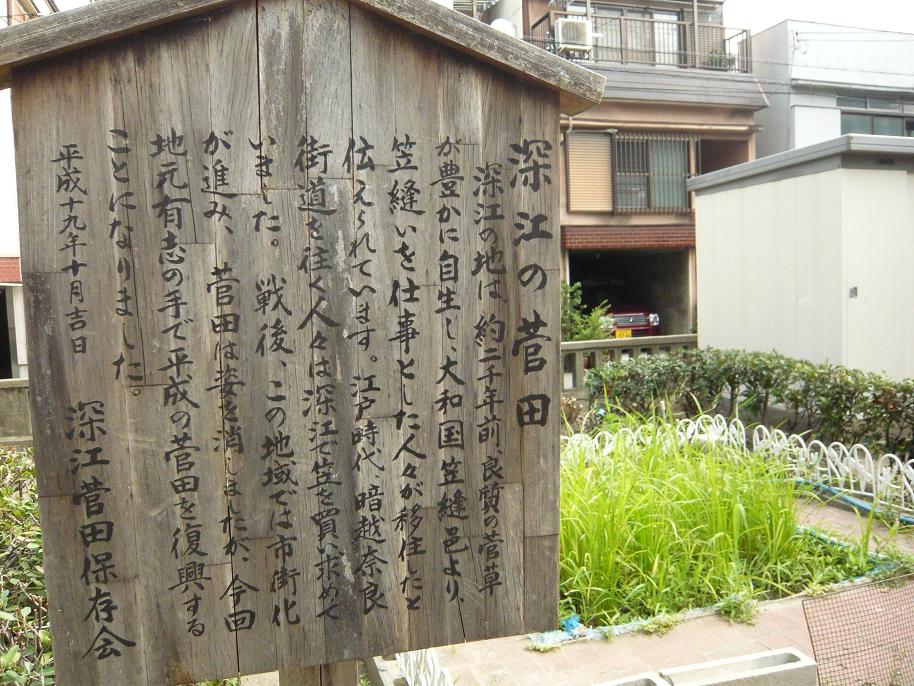 深江の菅田
深江の地は約二千年前、良質の菅草
が豊かに自生し、大和国笠縫邑より、
笠縫いを仕事とした人々が移住したと
伝えられています。江戸時代、暗越奈良
街道を往く人々は深江で笠を買い求めて
いました。戦後、この地域では市街化
が進み、菅田は姿を消しましたが、今回
地元有志の手で平成の菅田を復興する
ことになりました。
平成十九年十月吉日
深江菅田保存会